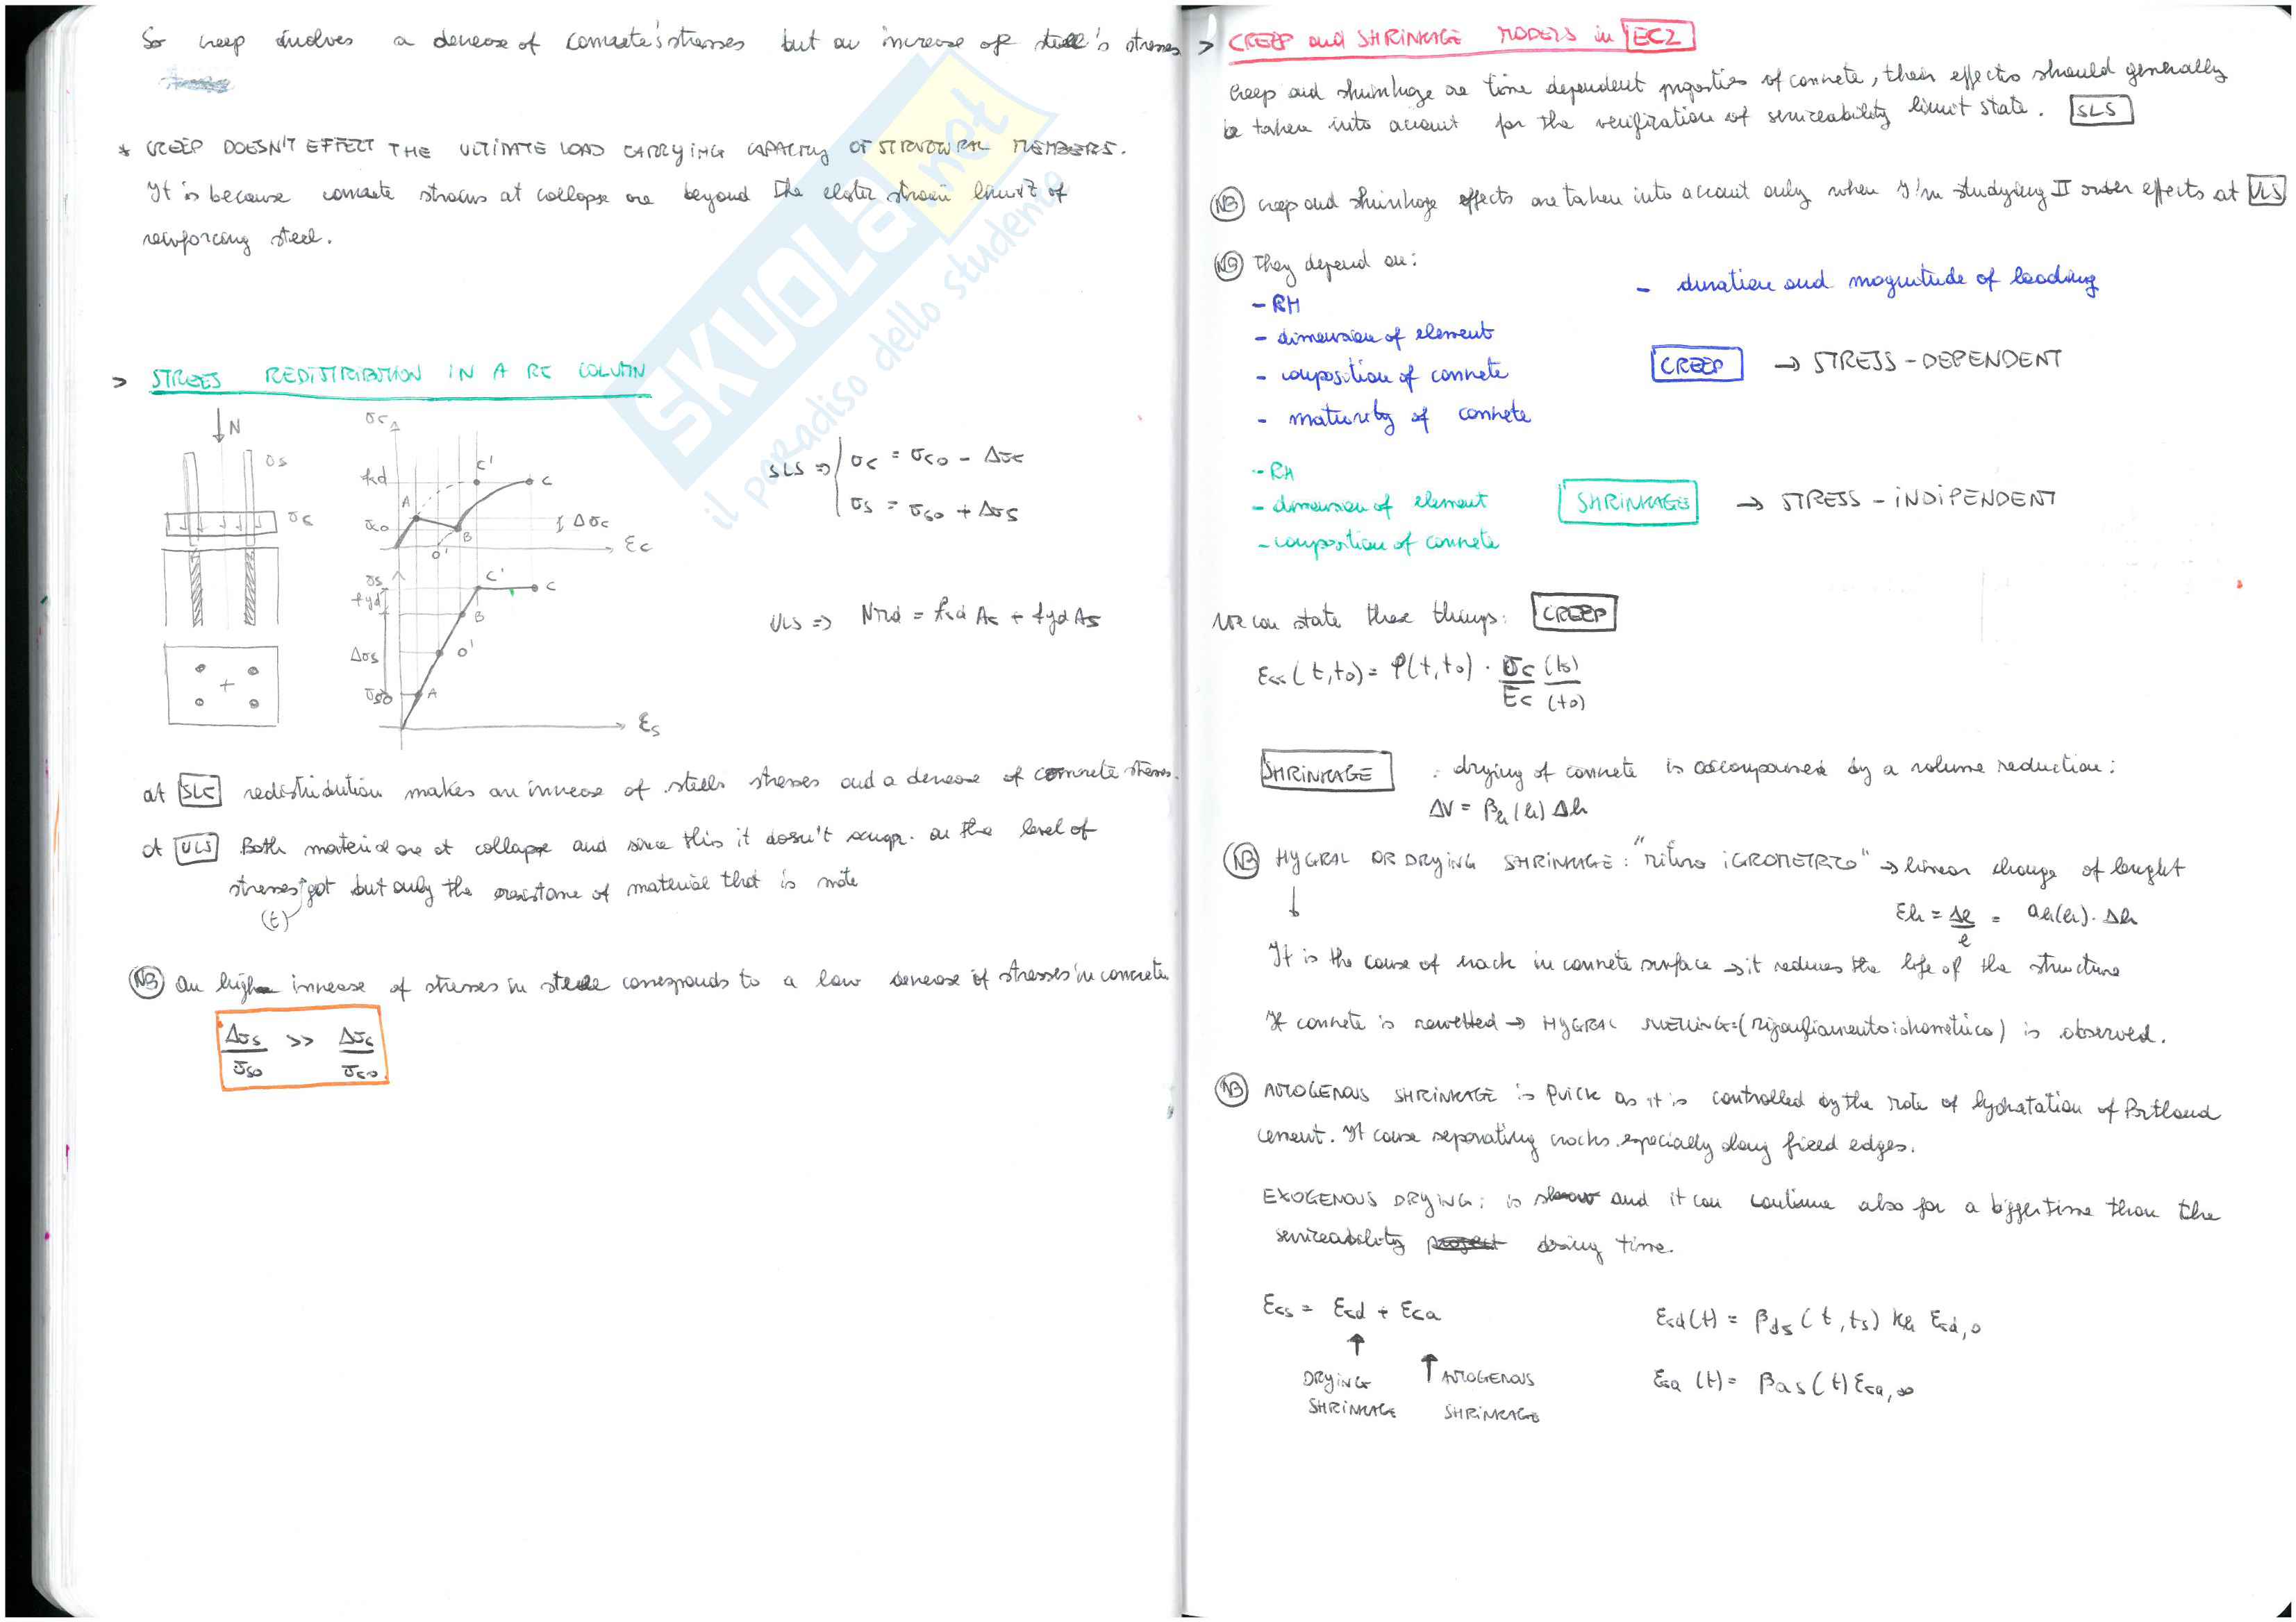 So creep involves a decrease of concrete's stresses but an increase of steel's stresses
* CREEP DOESN'T EFFECT THE ULTIMATE LOAD CARRYING CAPACITY OF STRUCTURAL MEMBERS.
It is because concrete strains at collapse are beyond the elastic strain limit of
reinforcing steel.
> STRESS REDISTRIBUTION IN A RC COLUMN
N
σs
σc
σc
fcd
σc0
A
B
C'
C
O'
Δσc
εc
σs
fyd
Δσs
σs0
A
O'
B
C'
C
εs
SLS ⇒ σc = σc0 - Δσc
σs = σs0 + Δσs
ULS ⇒ Nrd = fcd Ac + fyd As
at SLS redistribution makes an increase of steels stresses and a decrease of concrete stresses.
at ULS Both material are at collapse and since this it doesn't on the level of
stresses got but only the resistance of material that is
(t)
NB An high increase of stresses in steel corresponds to a low decrease of stresses in concrete
Δσs / σs0 >> Δσc / σc0
SKUOLA.net
il paradiso dello studente
> CREEP and SHRINKAGE MODELS in EC2
Creep and shrinkage are time dependent properties of concrete, their effects should generally
be taken into account for the verification of serviceability limit state. SLS
NB creep and shrinkage effects are taken into account only when I'm studying II order effects at ULS
NB They depend on:
- RH
- dimension of element
- composition of concrete
- maturity of concrete
- duration and magnitude of loading
CREEP → STRESS-DEPENDENT
- RH
- dimension of element
- composition of concrete
SHRINKAGE → STRESS-INDIPENDENT
We can state these things: CREEP
εcc (t,t0) = φ(t,t0) · σc (t0) / Ec (t0)
SHRINKAGE : drying of concrete is accompained by a volume reduction:
ΔV = βh (h) Δh
NB HYGRAL OR DRYING SHRINKAGE: "ritiro IGROMETRICO" → linear change of lenght
εh = Δl / l = αh(h) · Δh
It is the cause of crack in concrete surface → it reduces the life of the structure
If concrete is rewetted → HYGRAL SWELLING = (rigonfiamento igrometrico) is observed.
NB AUTOGENOUS SHRINKAGE is quick as it is controlled by the rate of hydratation of Portland
cement. It cause separating cracks especially along fixed edges.
EXOGENOUS DRYING: is slow and it can continue also for a bigger time than the
serviceability project time.
εcs = εcd + εca
DRYING SHRINKAGE
AUTOGENOUS SHRINKAGE
εcd(t) = βds (t,ts) kh εcd,0
εca (t) = βas (t) εca,∞